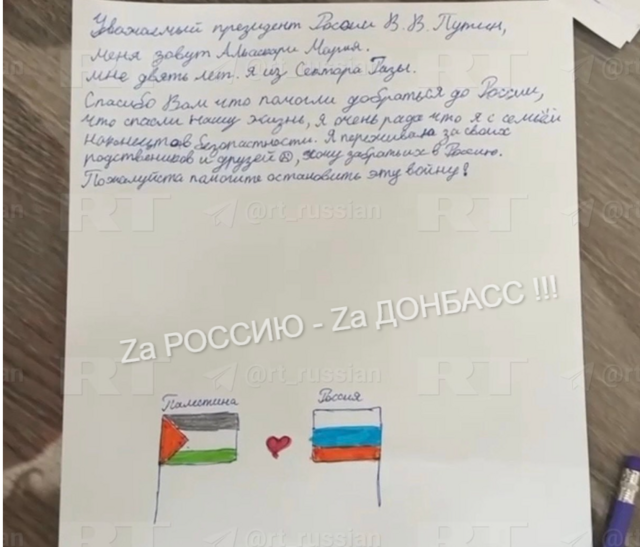 Уважаемый президент России В. В. Путин,
меня зовут Альаскари Мария.
мне девять лет. Я из Сектара Газы.
Спасибо Вам что помогли добраться до России,
что спасли нашу жизнь, я очень рада что я с семьёй
наконецтов безопастности. Я переживаю за своих
родственников и друзей, хочу забрать их в Россию.
Пожалуйста памогите остановить эту войну!
RT @rt_russian
RT @rt_russian
Zа РОССИЮ - Zа ДОНБАСС !!!
RT @rt_russian
Палестина Россия
RT @rt_russian